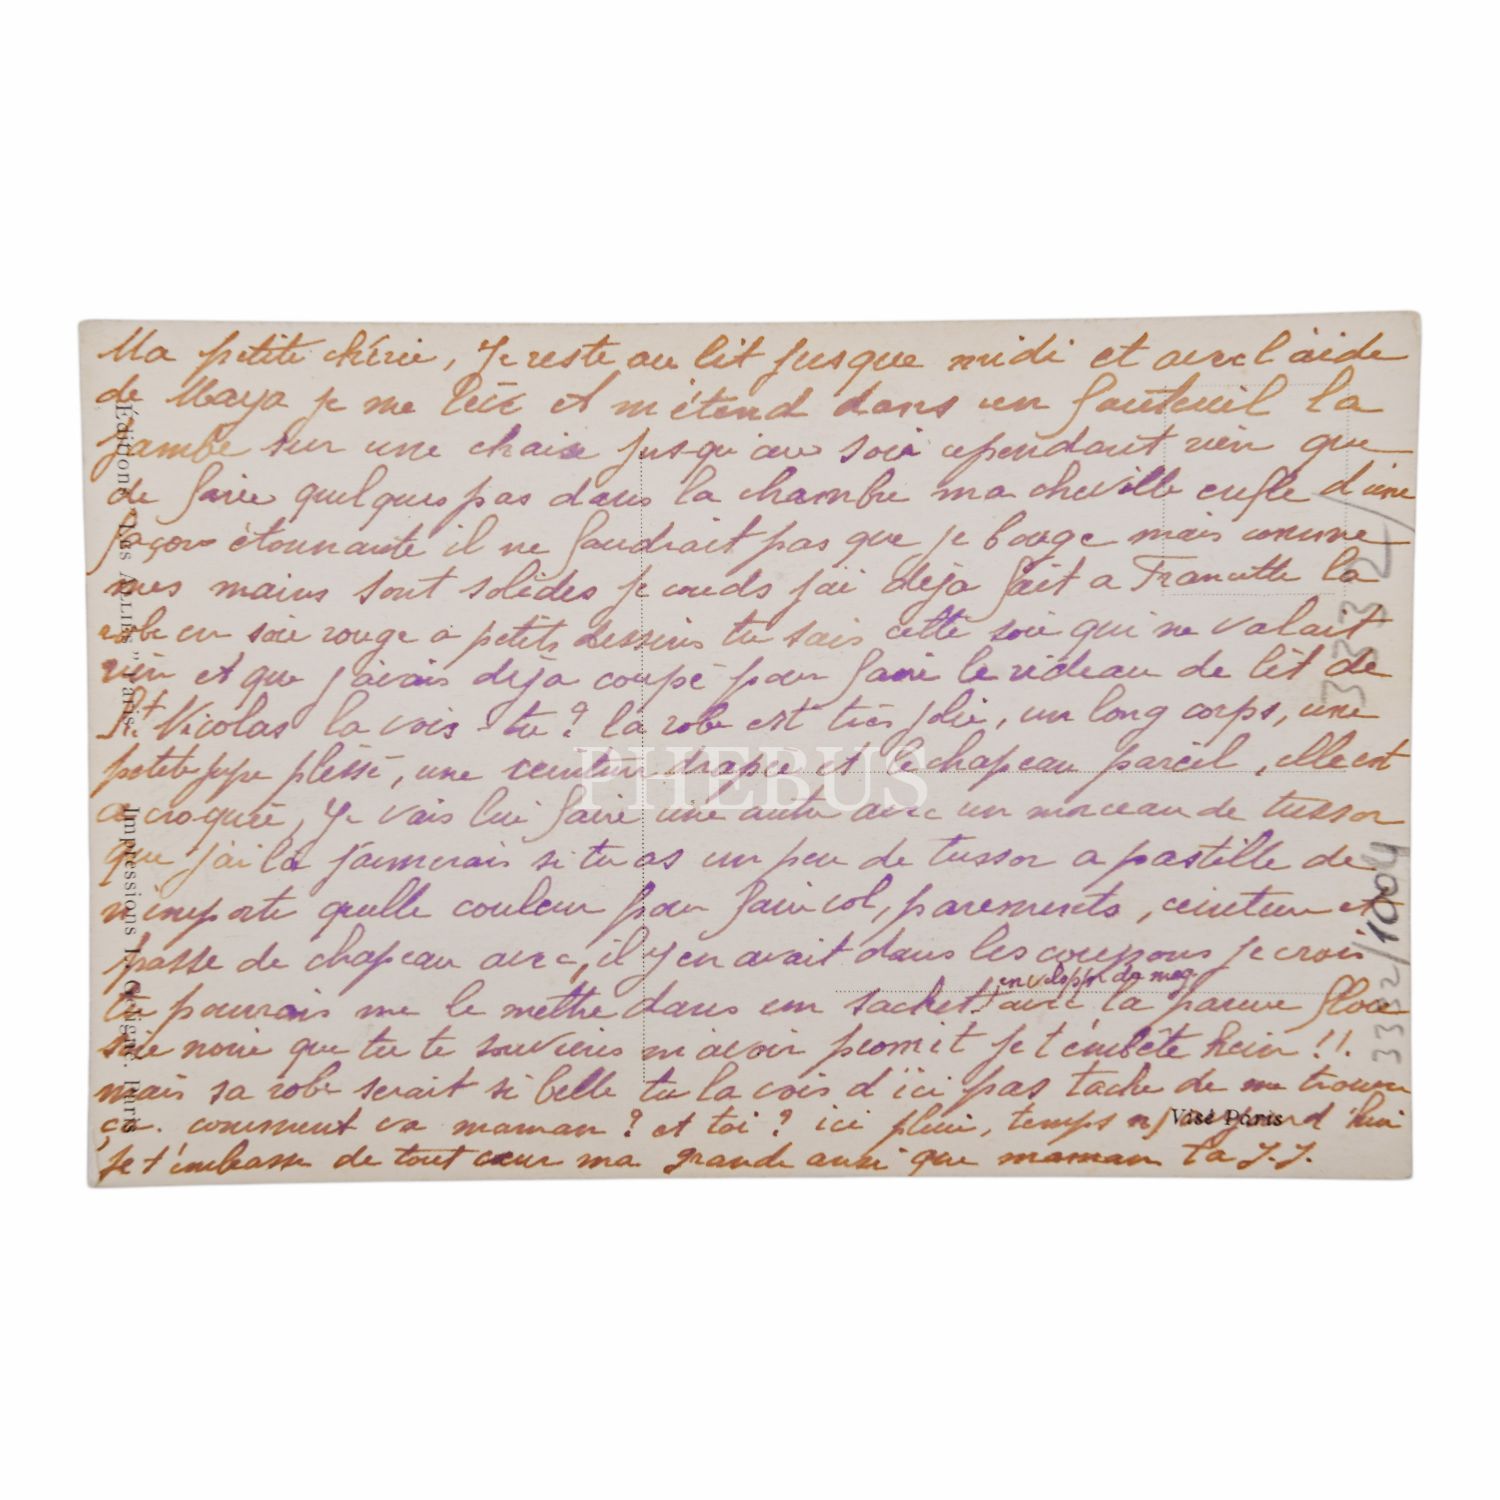 Ma petite chérie, Je reste au lit jusque midi et avec l'aide
de Maya je me lève et m'étend dans un fauteuil la
jambe sur une chaise jusqu'au soir cependant rien que
de faire quelques pas dans la chambre ma cheville enfle d'une
façon étonnante il ne faudrait pas que je bouge mais comme
mes mains sont solides je couds j'ai déja fait a Francette la
robe en soie rouge a petits dessins tu sais cette soie qui ne valait
rien et que j'avais déja coupé pour faire le rideau de lit de
St Nicolas la vois-tu? la robe est très jolie, un long corps, une
petite jupe plissé, une ceinture drapée et le chapeau pareil, elle est
a croquer, Je vais lui faire une autre avec un morceau de tussor
que j'ai la j'aimerais si tu as un peu de tussor a pastille de
n'importe quelle couleur pour faire col, parements, ceinture et
passe de chapeau avec, il y en avait dans les coupons je crois
tu pourrais me le mettre dans un sachet avec la
enveloppe de mag.
soie noire que tu te souviens m'avoir promit je t'embête hein!!.
mais sa robe serait si belle tu la vois d'ici pas tache de me trouver
ça. comment va maman? et toi? ici pluie, temps aujourd'hui
Je t'embrasse de tout cœur ma grande ainsi que maman ta J.J.
Éditions "Las Alliés" Paris.
Impressions Paris
Visé Paris
3332/
3332/1004
PHEBUS